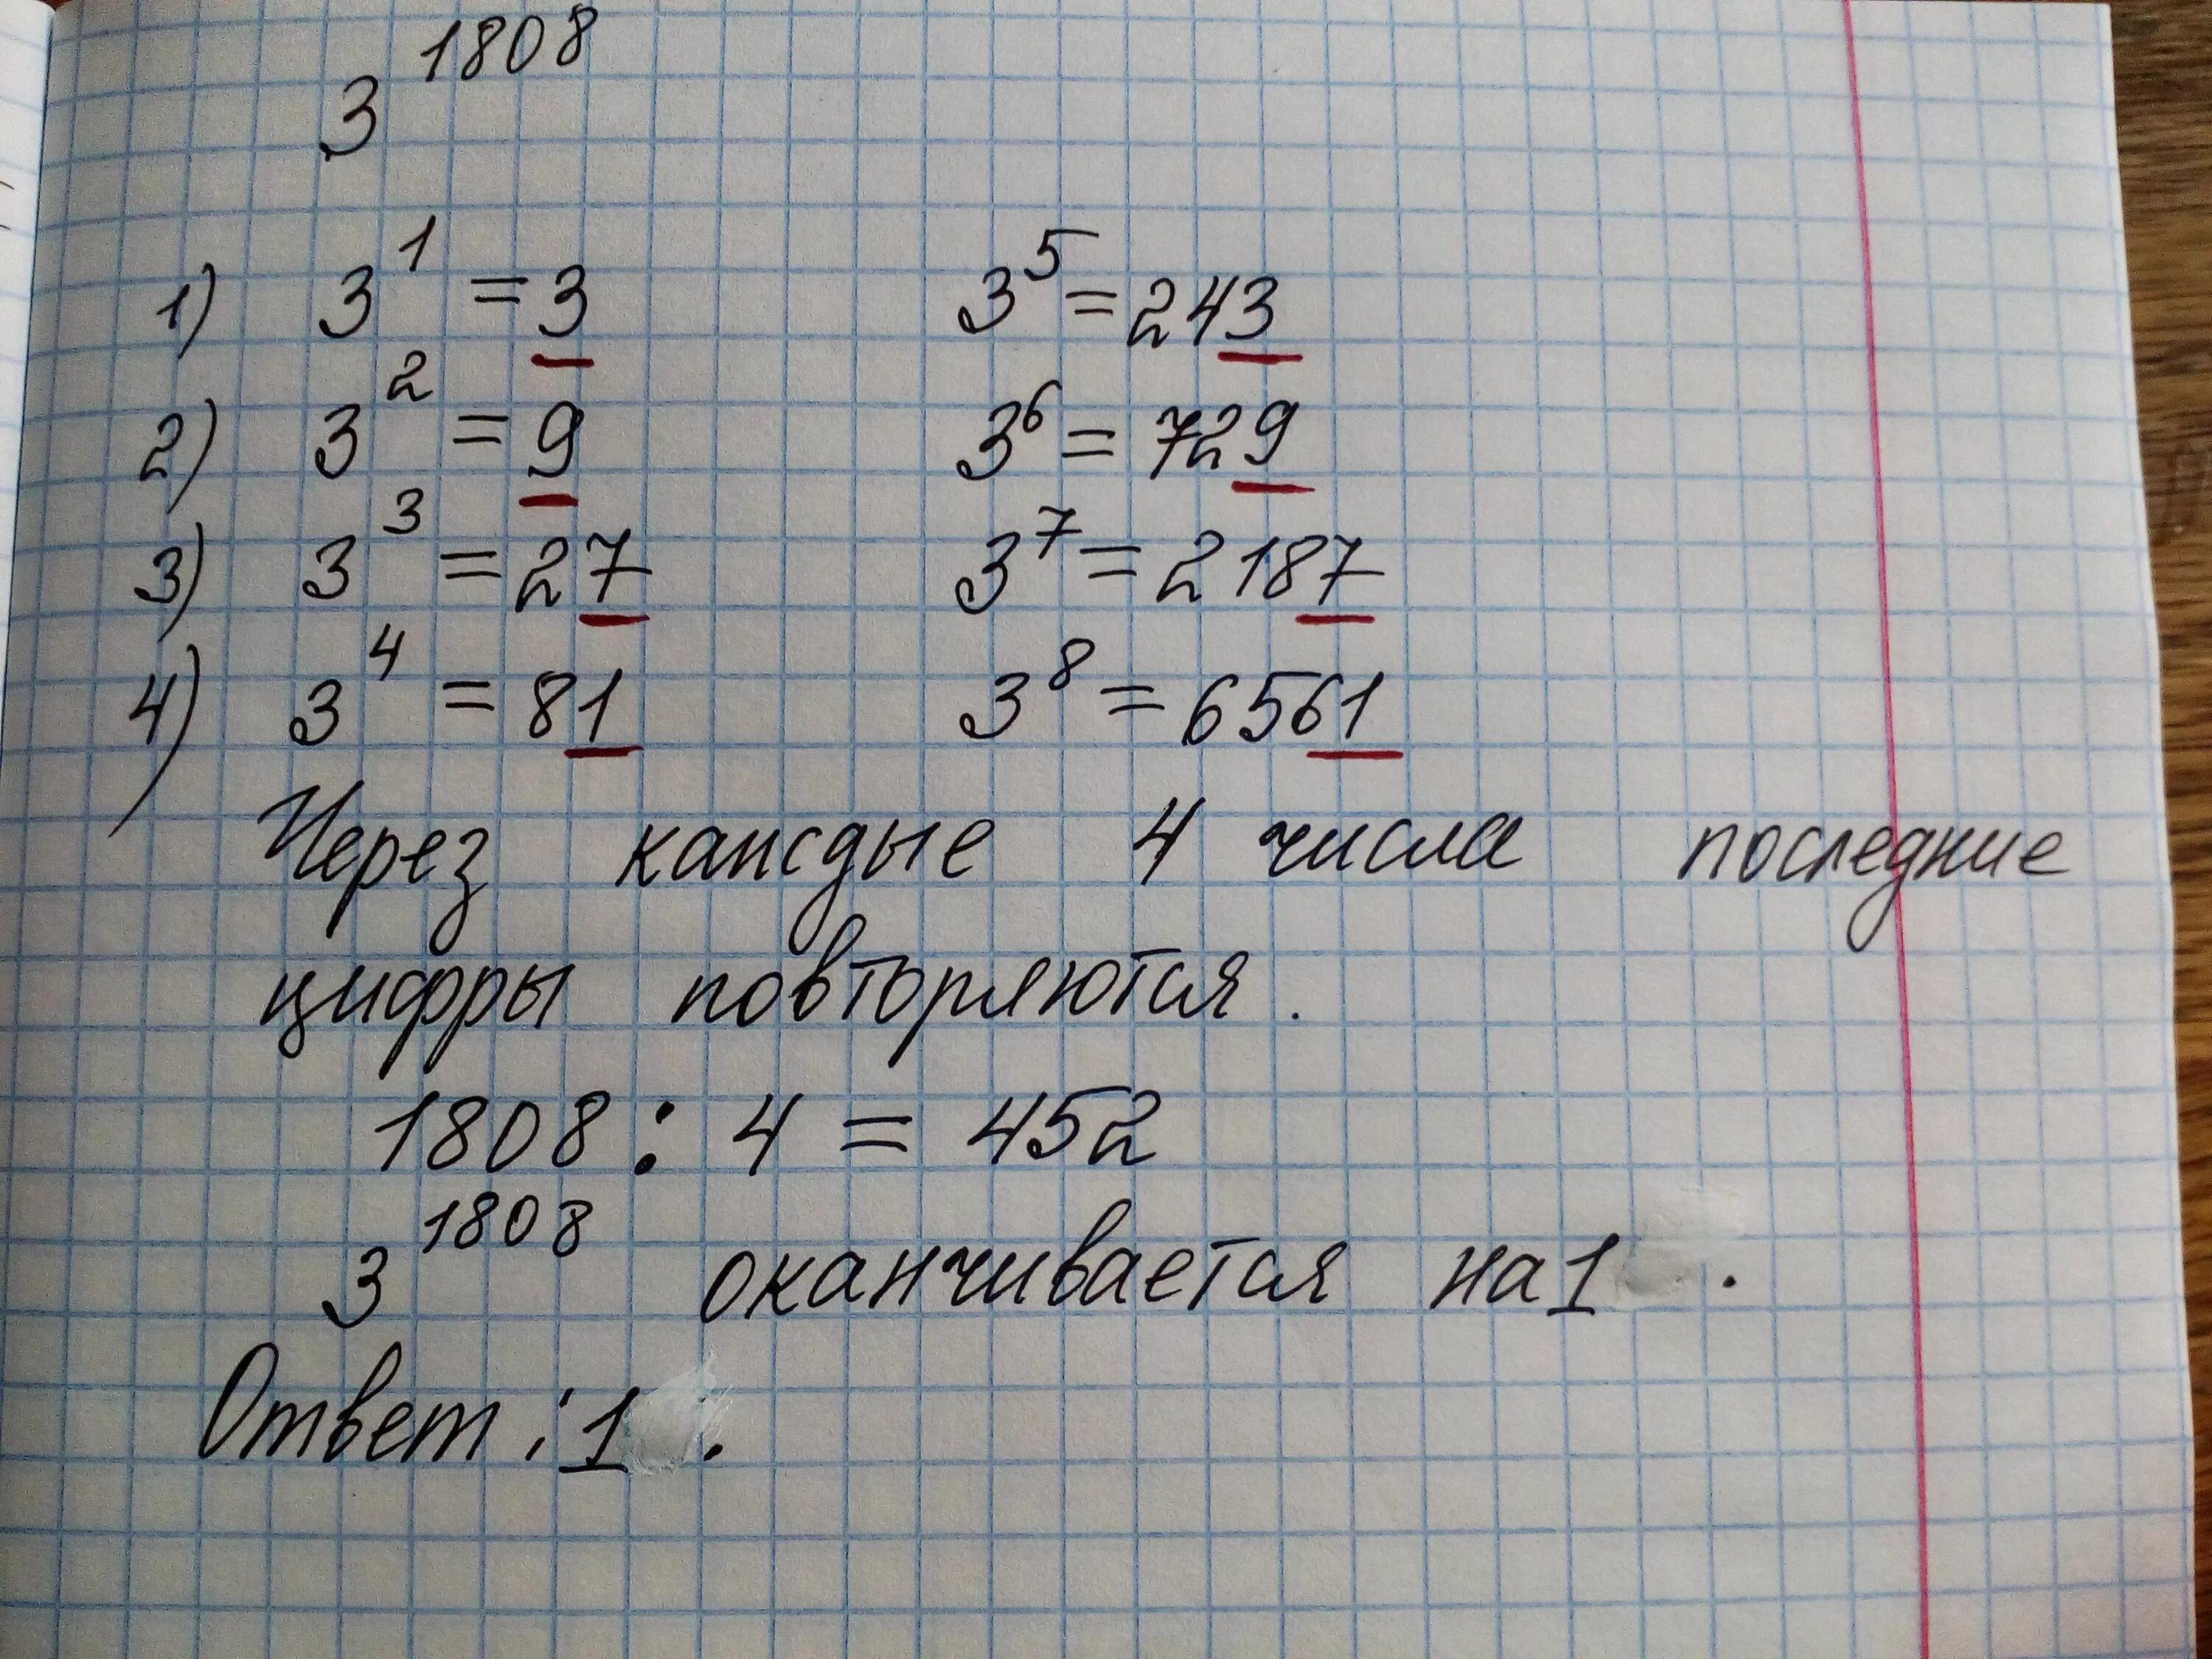 3^1808
1) 3^1 = 3 3^5 = 243
2) 3^2 = 9 3^6 = 729
3) 3^3 = 27 3^7 = 2187
4) 3^4 = 81 3^8 = 6561
Через каждые 4 числа последние
цифры повторяются.
1808 : 4 = 452
3^1808 оканчивается на 1 .
Ответ : 1 .